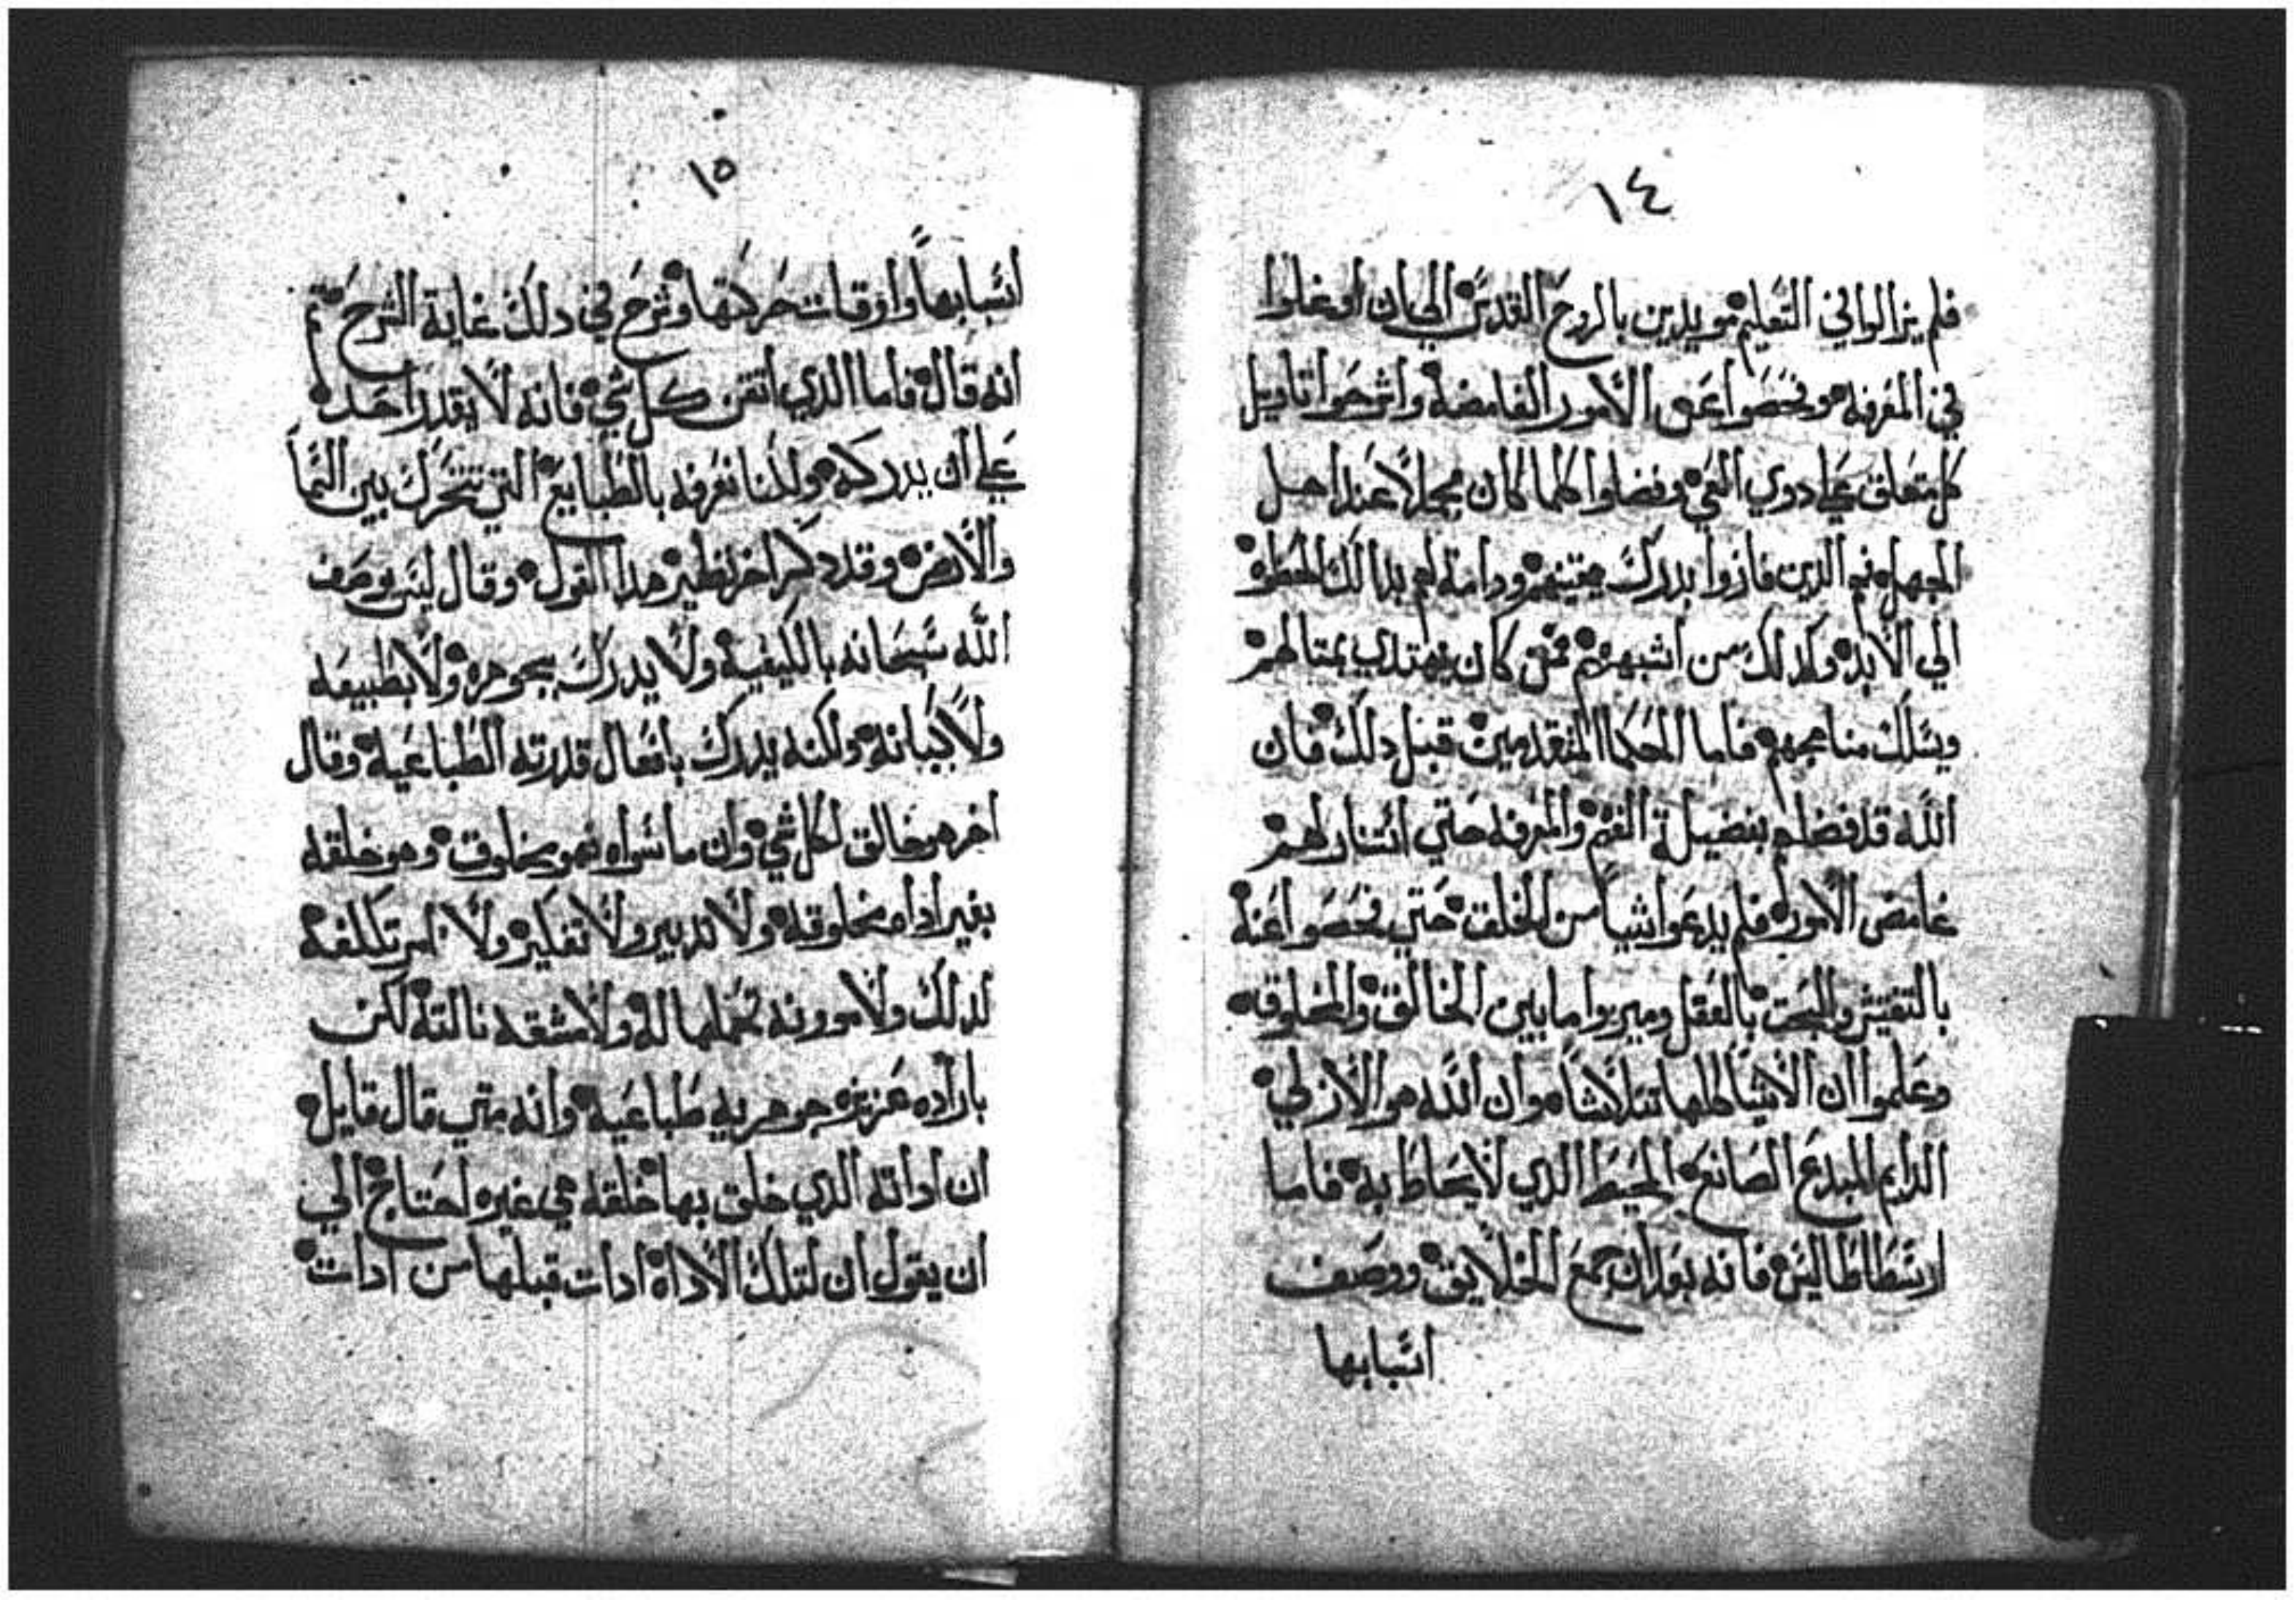 ١٤
فلم يزالوا في التعليم مويدين بالروح القدس الي ان اوغلوا
في المعرفه وفحصوا عن الامور الغامضة واشرحوا تاويل
كل متعلق علي دوي الغي وفضلوا كلما كان مجملاً عند اهل
الجهل الدين فازوا بدرك ودامة لهم بدالك الحظوه
الي الابد وكدلك من اشبههم ممن كان يهتدي بمتالهم
ويسلك مناهجهم فاما الحكما المتقدمين قبل دلك فان
الله قد فضلهم بفضيلة الفهم والمعرفه حتي استنار لهم
غامض الامور فلم يدعوا شيا من الخلق حتي فحصوا عنه
بالتفتيش والبحت بالعقل وميزوا ما بين الخالق والمخلوقه
وعلموا ان الاشيا كلها تتلاشا وان الله هو الازلي
الدايم المبدع الصانع المحيط الدي لا يحاط به فاما
ارسطاطاليس فانه بعد ان جمع الخلايق ووصف
اسبابها
١٥
اسبابها واوقات حركتها وشرح في دلك غاية الشرح تم
انه قال فاما الدي اتقن كل شي فانه لا يقدر احد
علي ان يدركه ولكننا نعرفه بالطبايع التي تتحرك بين السما
والارض وقد دكر اخر نظير هدا القول وقال ليس يوصف
الله سبحانه بالكيفية ولا يدرك بجوهره ولا بطبيعه
ولا بكيانه ولكنه يدرك بافعال قدرته الطباعيه وقال
اخر هو خالق لكل شي وان ما سواه فهو مخلوق وهو خلقه
بغير اداه مخلوقه ولا تدبير ولا تفكير ولا امر تكلفه
لدلك ولا موونه تحملها له ولا مشقه نالته لكن
باراده عزيزه جوهريه طباعيه وانه متي قال قايل
ان اداته الدي خلق بها خلقه هي غيره احتاج الي
ان يقول ان لتلك الاداة ادات قبلها من ادات